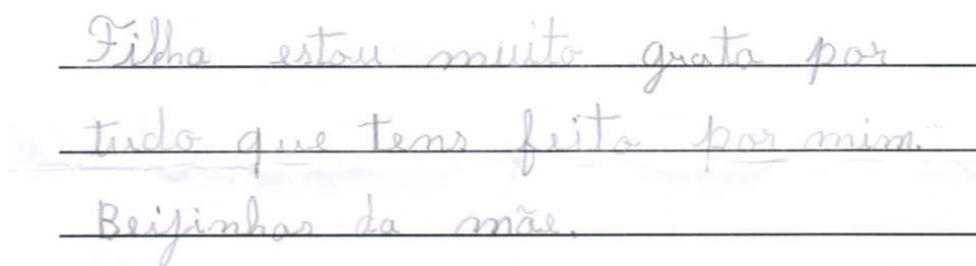 Filha estou muito grata por
tudo que tens feito por mim.
Beijinhos da mãe.